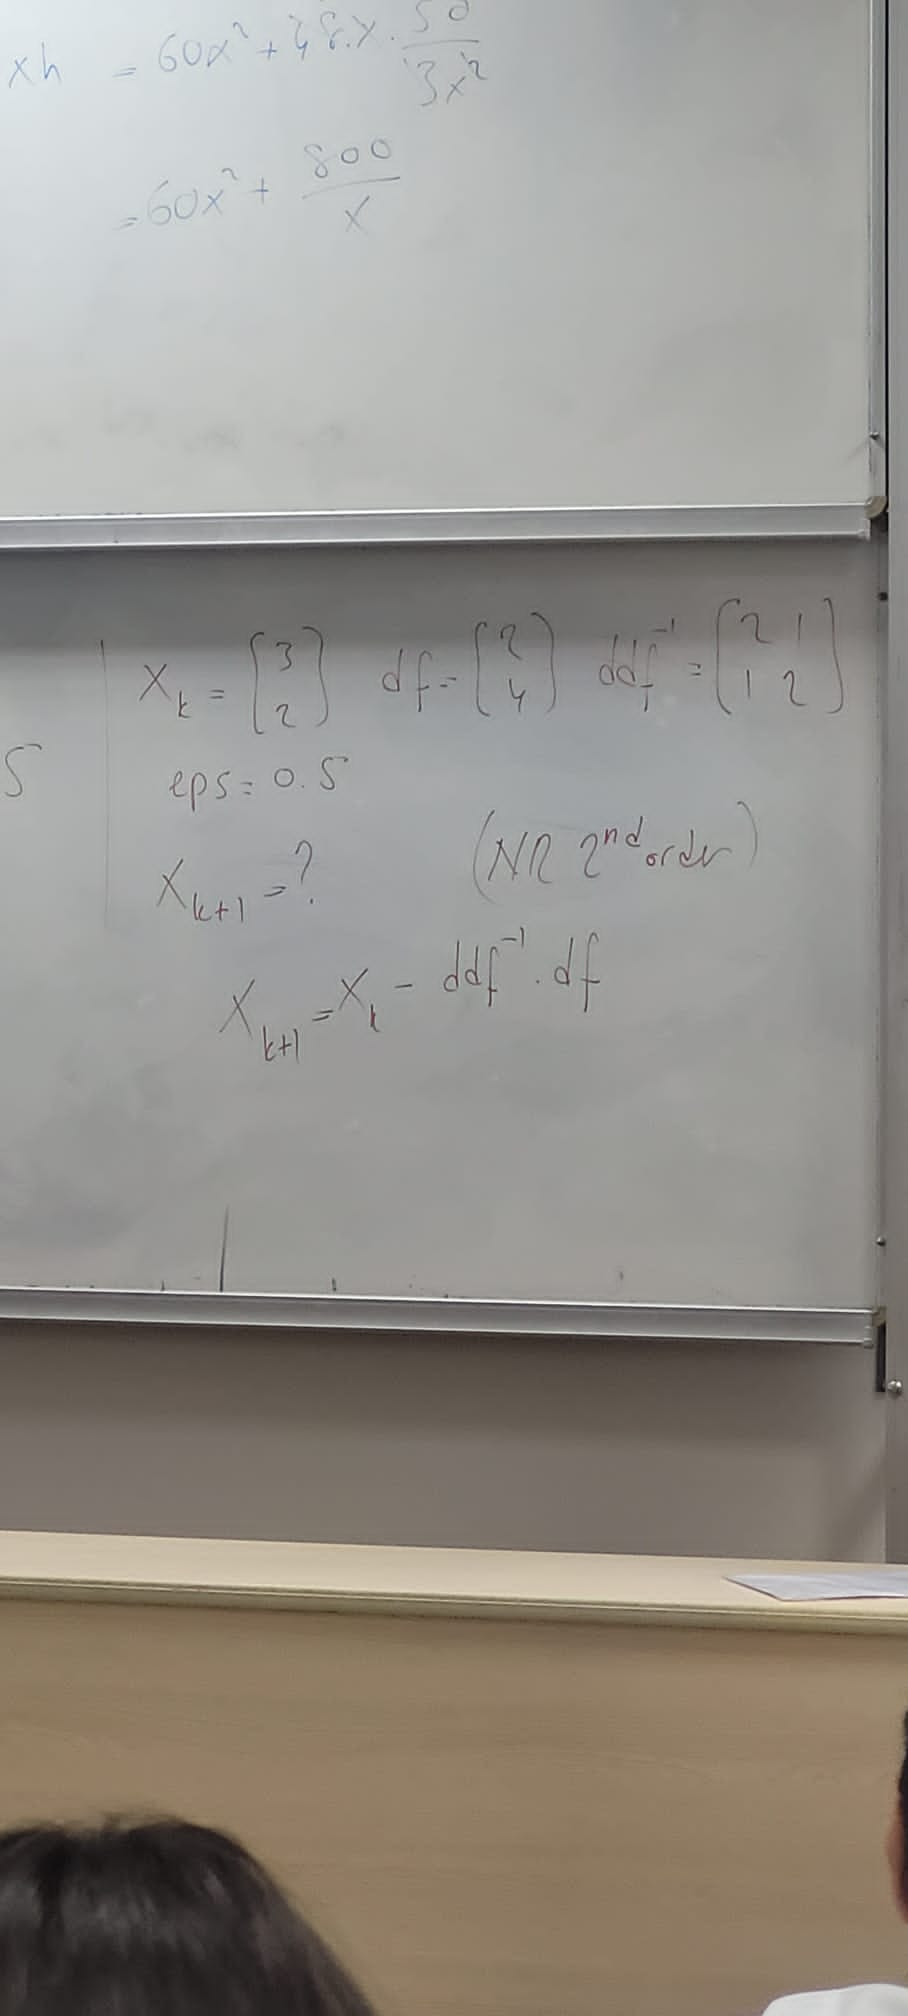 xh = 60x² + 48.x. 50/3x²
= 60x² + 800/x
X_k = [3 2] df = [2 4] ddf⁻¹ = [2 1 1 2]
5
eps = 0.5
X_k+1 = ? (NR 2nd order)
X_k+1 = X_k - ddf⁻¹ . df